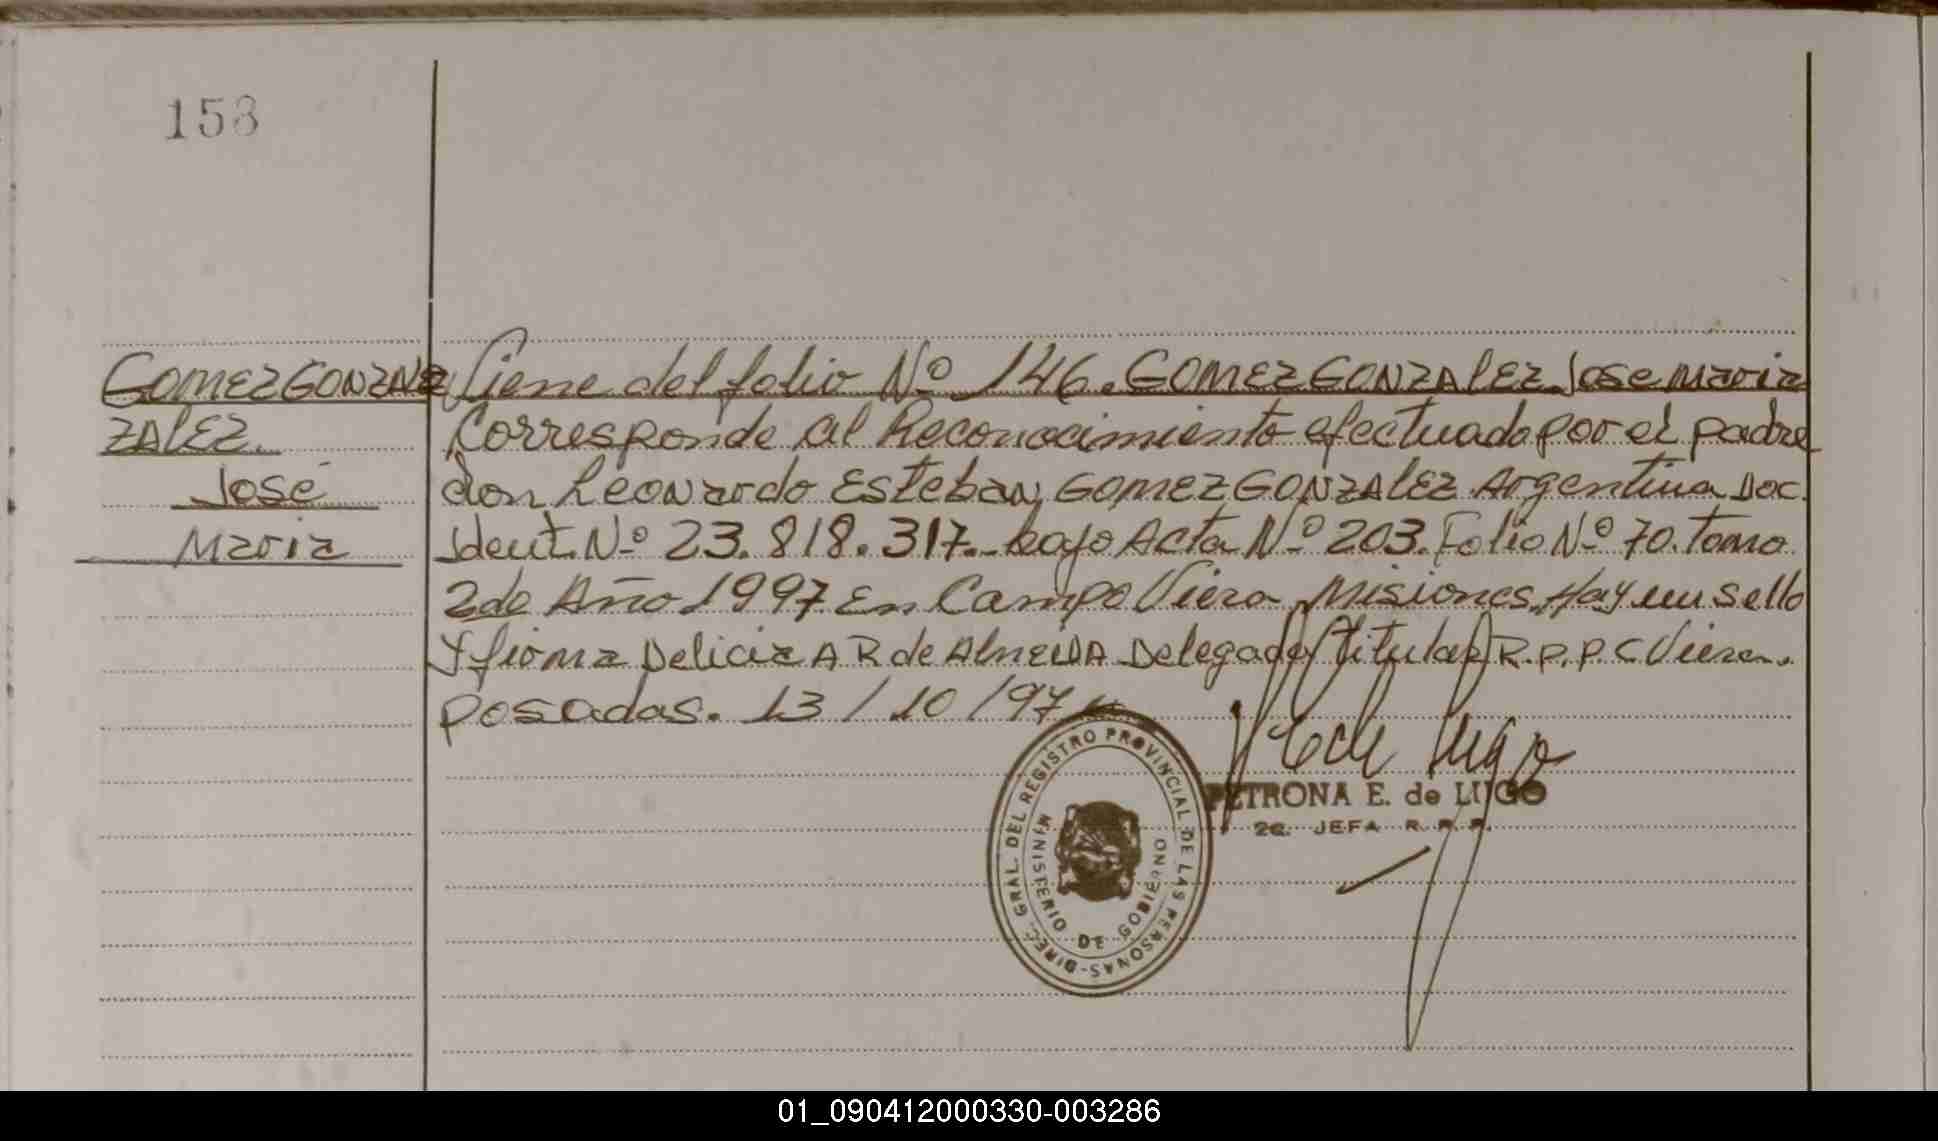 153
GOMEZ GONZALEZ
ZALEZ.
José
Maria
Viene del folio Nº 146. GOMEZ GONZALEZ Jose Maria
Corresponde al Reconocimiento efectuado por el padre
don Leonardo Esteban GOMEZ GONZALEZ Argentina Doc.
Ident. Nº 23.818.317.- bajo Acta Nº 203. Folio Nº 70. Tomo
2do Año 1997 En Campo Viera Misiones. Hay un sello
Y firma Delicia A R de Almeida Delegado titular R.P.P. C Viera.
Posadas. 13/10/97
DIREC. GRAL. DEL REGISTRO PROVINCIAL DE LAS PERSONAS-
MINISTERIO DE GOBIERNO
PETRONA E. de LUGO
2a. JEFA R.P.P.
01_090412000330-003286